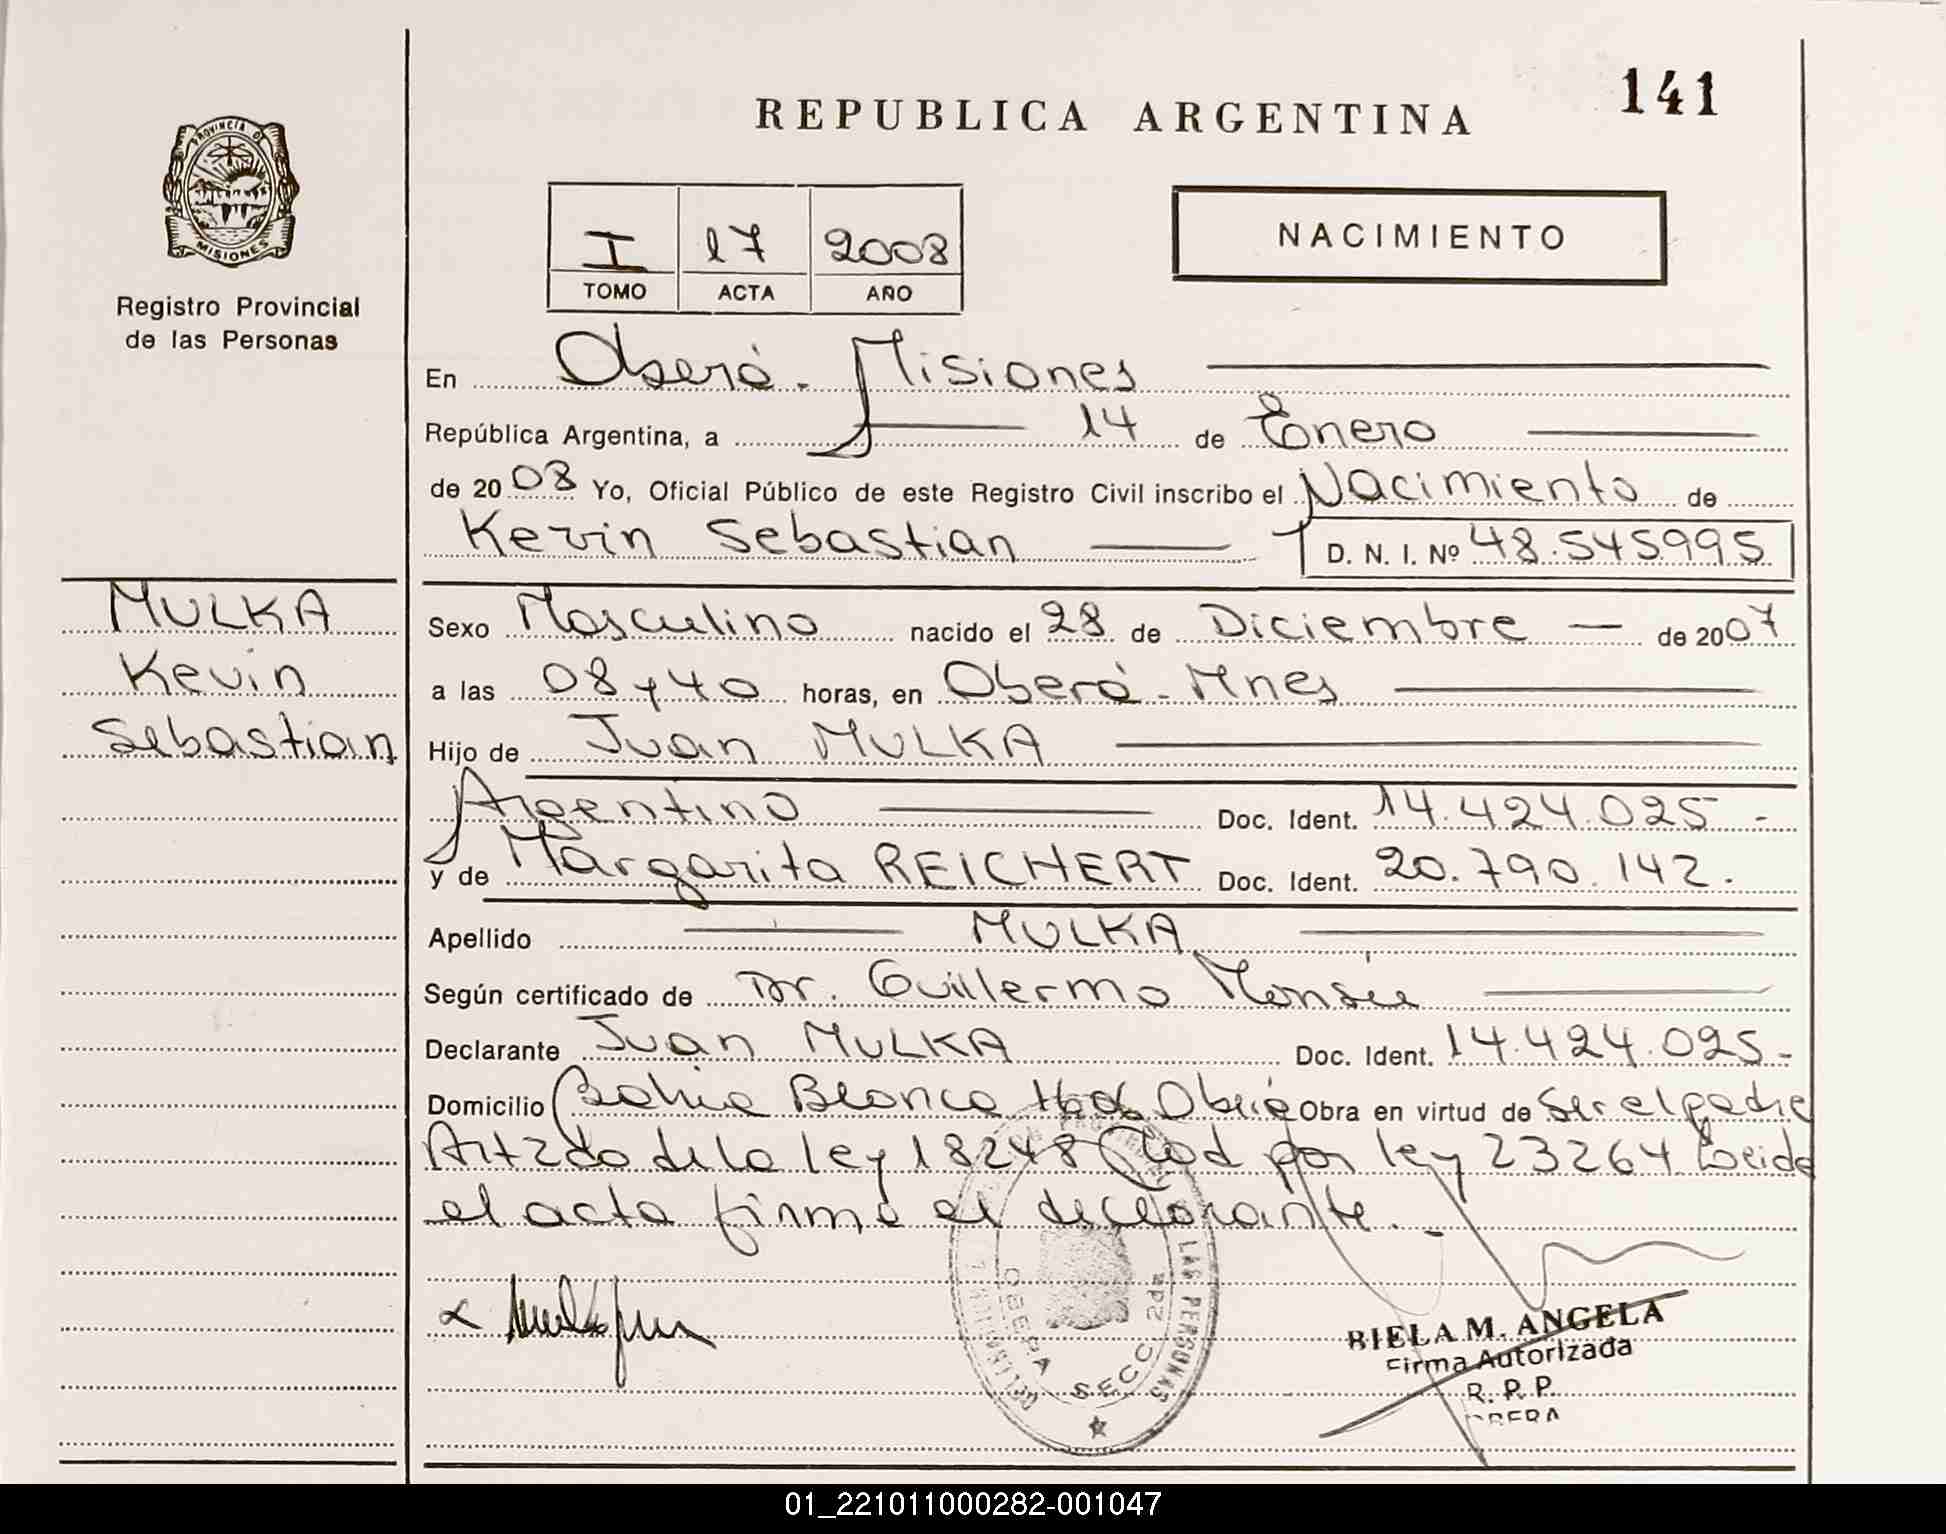 141
REPUBLICA ARGENTINA
PROVINCIA DE
MISIONES
Registro Provincial
de las Personas
I 17 2008
TOMO ACTA AÑO
NACIMIENTO
En Oberá - Misiones
República Argentina, a 14 de Enero
de 2008 Yo, Oficial Público de este Registro Civil inscribo el Nacimiento de
Kevin Sebastian D. N. I. Nº 48.545.995
MULKA
Kevin
Sebastian
Sexo Masculino nacido el 28 de Diciembre de 2007
a las 08 y 40 horas, en Oberá - Mnes
Hijo de Juan MULKA
Argentino Doc. Ident. 14.424.025 -
y de Margarita REICHERT Doc. Ident. 20.790.142.
Apellido MULKA
Según certificado de Dr. Guillermo
Declarante Juan MULKA Doc. Ident. 14.424.025 -
Domicilio Bahia Blanca Oberá Obra en virtud de Ser el padre
Art 2do de la ley 18248 Mod por ley 23264 Leida
el acta firma el declarante.
LAS PERSONAS
OBERA SECC. 2da
BIELA M. ANGELA
Firma Autorizada
R. P. P.
OBERA
01_221011000282-001047